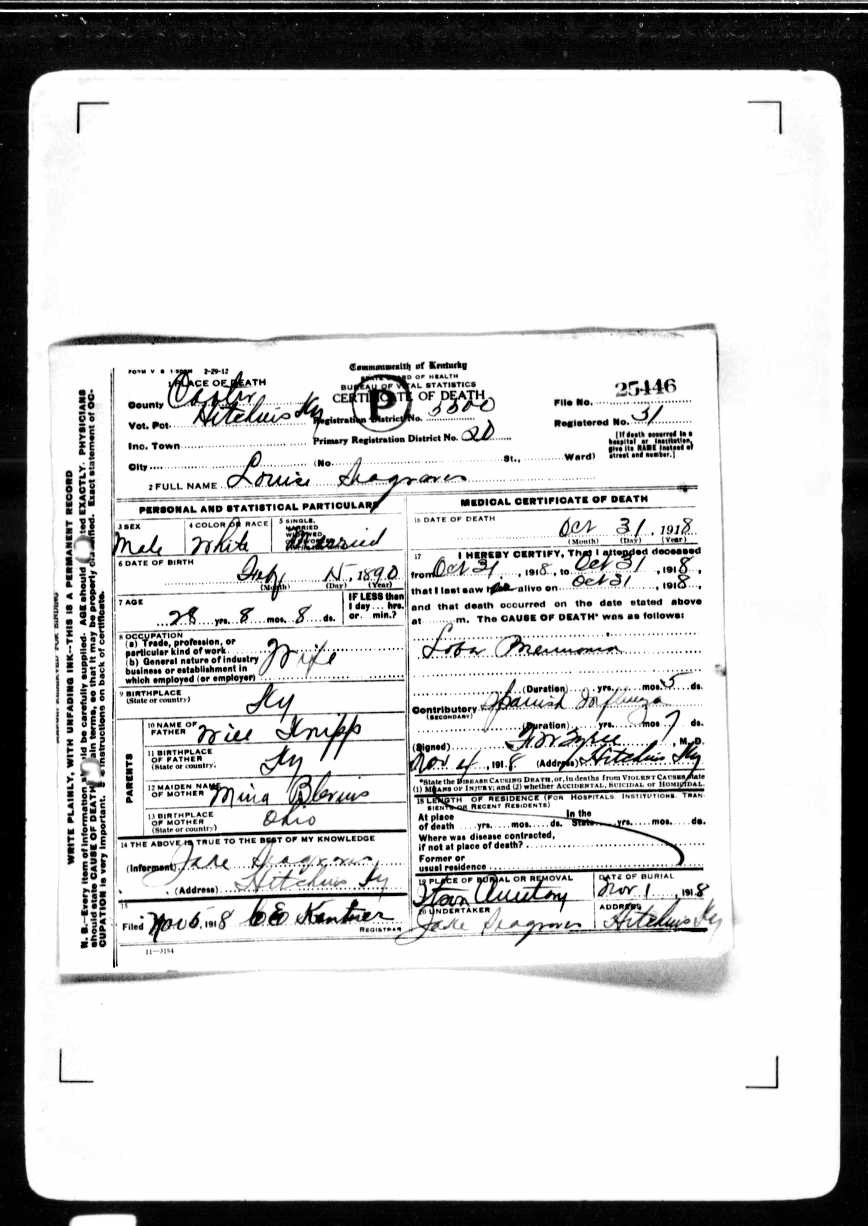 FORM V S 1-50M 2-29-12
Commonwealth of Kentucky
STATE BOARD OF HEALTH
BUREAU OF VITAL STATISTICS
CERTIFICATE OF DEATH
P
1 PLACE OF DEATH
County Carter
Vot. Pct. Hitchins Ky
Inc. Town
City (No. St., Ward)
Registration District No. 5500
Primary Registration District No. 20
File No. 25446
Registered No. 31
[If death occurred in a hospital or institution, give its NAME instead of street and number.]
2 FULL NAME Louise Seagraves
PERSONAL AND STATISTICAL PARTICULARS
3 SEX Male
4 COLOR OR RACE White
5 SINGLE, MARRIED WIDOWED OR DIVORCED Married
6 DATE OF BIRTH
Feby 15, 1890
(Month) (Day) (Year)
7 AGE
28 yrs. 8 mos. 8 ds.
IF LESS than 1 day ... hrs. or min.?
8 OCCUPATION
(a) Trade, profession, or particular kind of work Wife
(b) General nature of industry business or establishment in which employed (or employer)
9 BIRTHPLACE
(State or country) Ky
PARENTS
10 NAME OF FATHER Will Knipp
11 BIRTHPLACE OF FATHER
(State or country) Ky
12 MAIDEN NAME OF MOTHER Mina Blevins
13 BIRTHPLACE OF MOTHER
(State or country) Ohio
14 THE ABOVE IS TRUE TO THE BEST OF MY KNOWLEDGE
(Informant) Jake Seagraves
(Address) Hitchins Ky
15
Filed Nov 5, 1918 CE Kantner
REGISTRAR
11-3184
MEDICAL CERTIFICATE OF DEATH
16 DATE OF DEATH
Oct 31, 1918
(Month) (Day) (Year)
17 I HEREBY CERTIFY, That I attended deceased
from Oct 31, 1918, to Oct 31, 1918,
that I last saw her alive on Oct 31, 1918,
and that death occurred on the date stated above
at m. The CAUSE OF DEATH* was as follows:
Loba Pneumonia
(Duration) yrs. mos. 5 ds.
Contributory Spanish Influenza
(SECONDARY)
(Duration) yrs. mos 7 ds.
(Signed) , M.D.
Nov 4, 1918 (Address) Hitchins Ky
*State the DISEASE CAUSING DEATH, or, in deaths from VIOLENT CAUSES, state
(1) MEANS OF INJURY; and (2) whether ACCIDENTAL, SUICIDAL or HOMICIDAL.
18 LENGTH OF RESIDENCE (FOR HOSPITALS INSTITUTIONS, TRANSIENTS OR RECENT RESIDENTS)
At place of death yrs. mos. ds. In the State yrs. mos. ds.
Where was disease contracted,
if not at place of death?
Former or
usual residence
19 PLACE OF BURIAL OR REMOVAL
DATE OF BURIAL
Nov 1 1918
20 UNDERTAKER
Jake Seagraves
ADDRESS
Hitchins Ky
WRITE PLAINLY, WITH UNFADING INK—THIS IS A PERMANENT RECORD
N. B.—Every item of information should be carefully supplied. AGE should be stated EXACTLY. PHYSICIANS
should state CAUSE OF DEATH in plain terms, so that it may be properly classified. Exact statement of OC-
CUPATION is very important. See instructions on back of certificate.